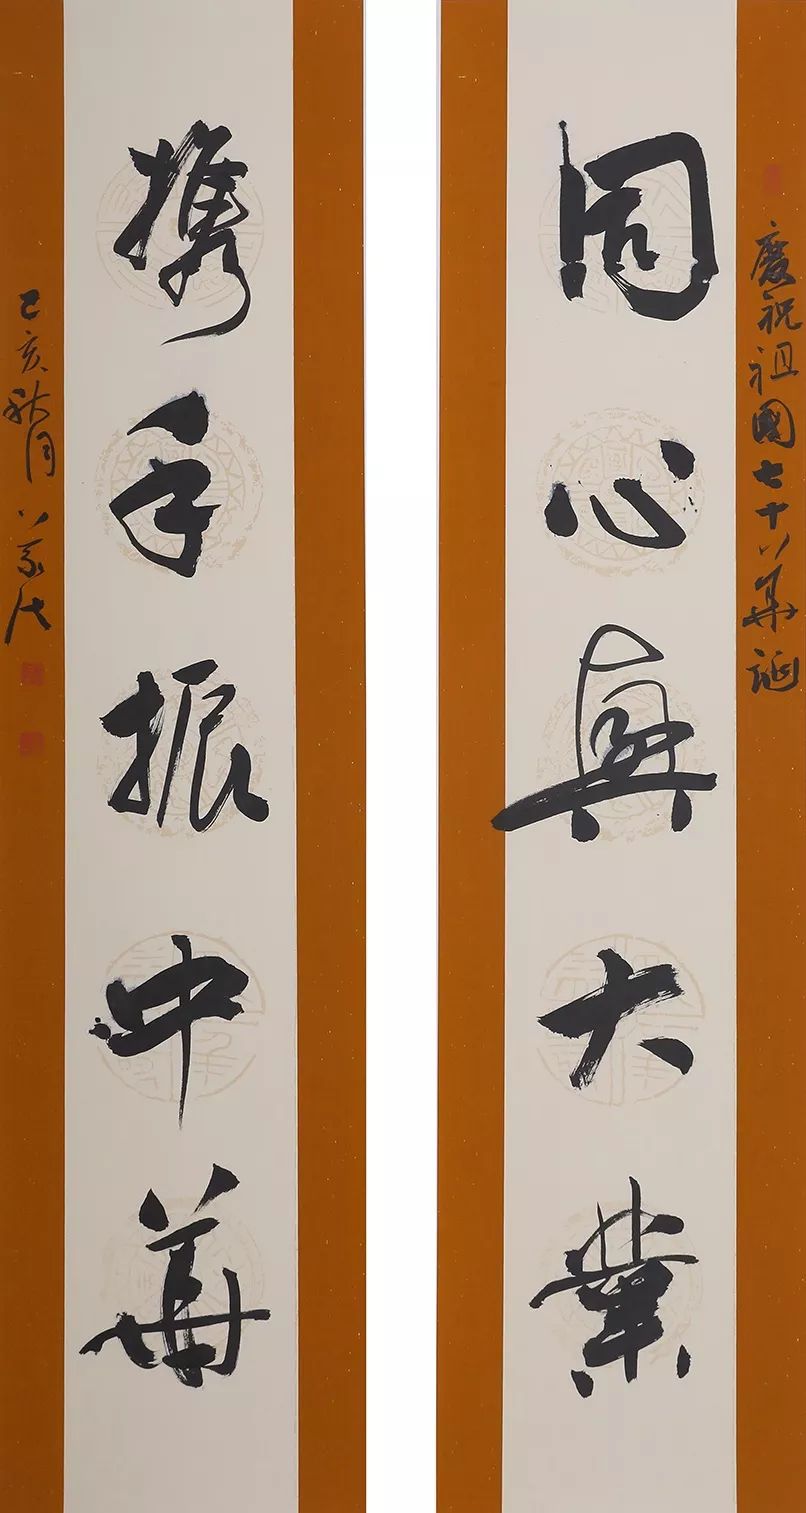 慶祝祖國七十華誕
同心興大業
携手振中華
己亥秋月